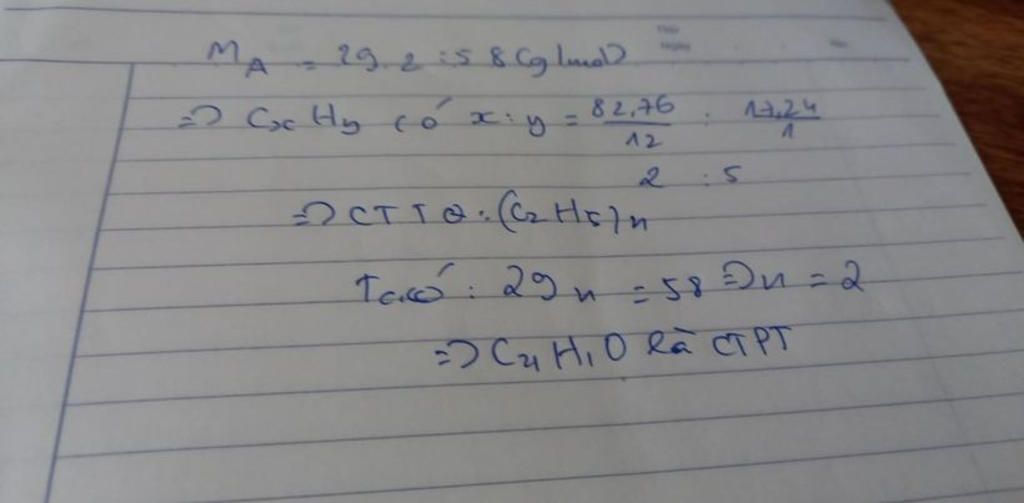 M_A = 29.2 = 58 (g/mol)
=> CxHy có x:y = 82,76/12 : 17,24/1
2 : 5
=> CTTQ: (C2H5)n
Ta có: 29n = 58 => n = 2
=> C4H10 là CTPT